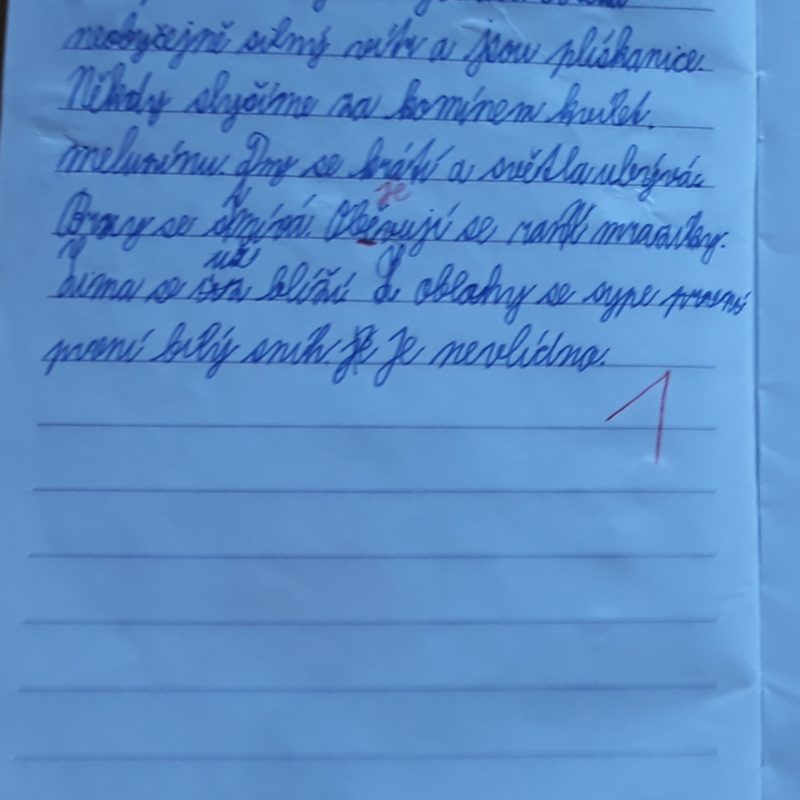 neobyčejně silný vítr a jsou plískanice.
Někdy slyčíme za komínem kvílet
meluzínu. Dny se krátí a světla ubývá.
Brzy se stmívá. Oběvují se ranní mrazíky.
je
už
Zima se blíží. Z oblahy se sype první
první bílý sníh. Je nevlídno.
1